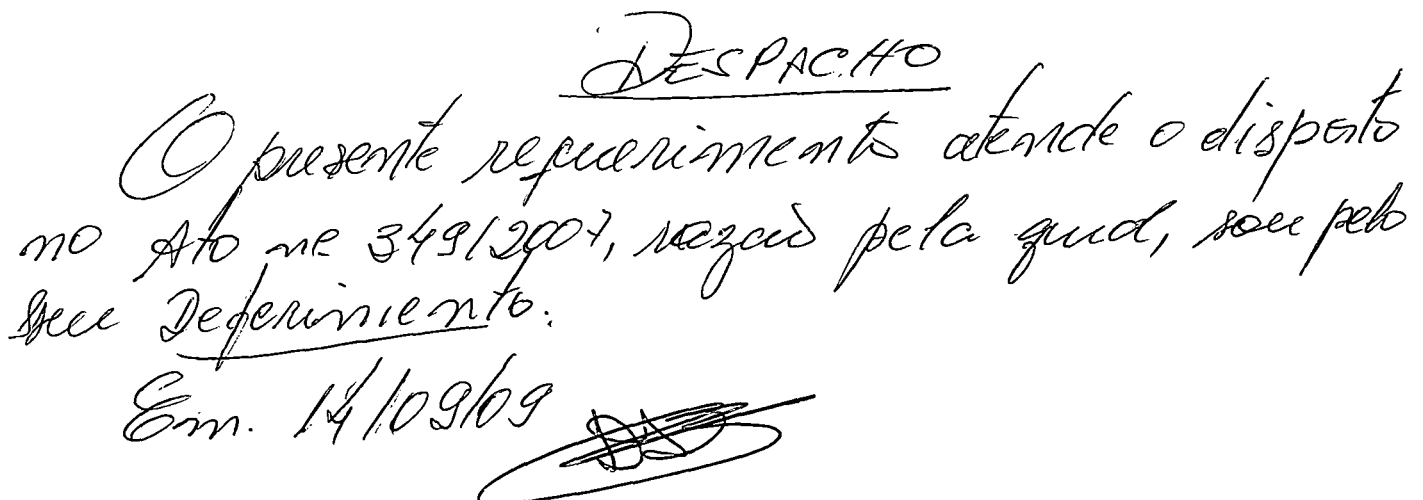 DESPACHO
O presente requerimento atende o disposto
no Ato nº 349/2007, razão pela qual, sou pelo
seu Deferimento.
Em. 14/09/09